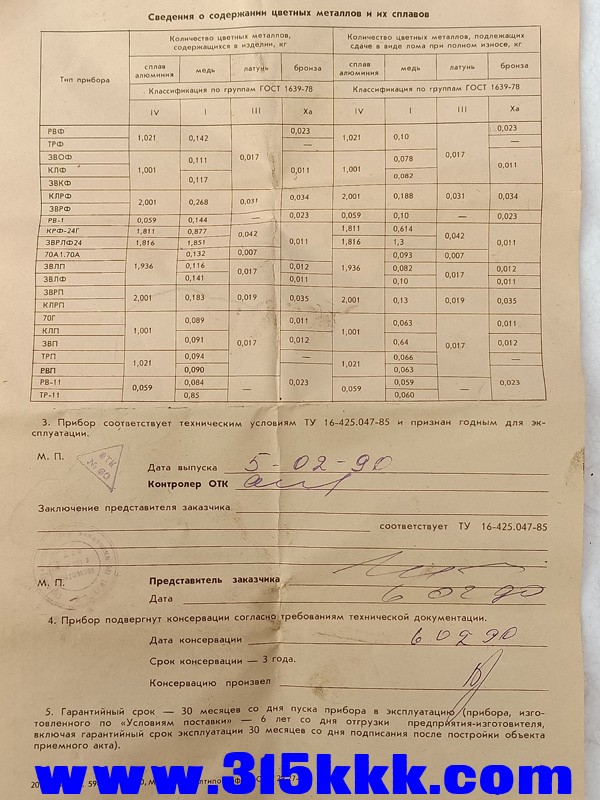 Сведения о содержании цветных металлов и их сплавов
Тип прибора
Количество цветных металлов, содержащихся в изделии, кг
Количество цветных металлов, подлежащих сдаче в виде лома при полном износе, кг
сплав алюминия медь латунь бронза сплав алюминия медь латунь бронза
Классификация по группам ГОСТ 1639-78 Классификация по группам ГОСТ 1639-78
IV I III Xa IV I III Xa
РВФ 1,021 0,142 0,017 0,023 1,021 0,10 0,017 0,023
ТРФ — —
ЗВОФ 1,001 0,111 0,011 1,001 0,078 0,011
КЛФ
ЗВКФ 0,117 0,082
КЛРФ 2,001 0,268 0,031 0,034 2,001 0,188 0,031 0,034
ЗВРФ
РВ-1 0,059 0,144 — 0,023 0,059 0,10 — 0,023
КРФ-24Г 1,811 0,877 0,042 0,011 1,811 0,614 0,042 0,011
ЗВРЛФ24 1,816 1,851 1,816 1,3
70А1.70А 1,936 0,132 0,007 1,936 0,093 0,007
ЗВЛП 0,116 0,017 0,012 0,082 0,017 0,012
ЗВЛФ 0,141 0,011 0,10 0,011
ЗВРП 2,001 0,183 0,019 0,035 2,001 0,13 0,019 0,035
КЛРП
70Г 1,001 0,089 0,017 0,011 1,001 0,063 0,017 0,011
КЛП
ЗВП 0,091 0,012 0,64 0,012
ТРП 1,021 0,094 — 1,021 0,066 —
РВП 0,090 0,063
РВ-11 0,059 0,084 — 0,023 0,059 0,059 — 0,023
ТР-11 0,85 0,060
3. Прибор соответствует техническим условиям ТУ 16-425.047-85 и признан годным для эк-
сплуатации.
М. П.
ОТК
№ 60
Дата выпуска 5-02-90
Контролер ОТК
Заключение представителя заказчика
соответствует ТУ 16-425.047-85
М. П.
Представитель заказчика
Дата 6 02 90
4. Прибор подвергнут консервации согласно требованиям технической документации.
Дата консервации 6 02 90
Срок консервации — 3 года.
Консервацию произвел
5. Гарантийный срок — 30 месяцев со дня пуска прибора в эксплуатацию (прибора, изго-
товленного по «Условиям поставки» — 6 лет со дня отгрузки предприятия-изготовителя,
включая гарантийный срок эксплуатации 30 месяцев со дня подписания после постройки объекта
приемного акта).
www.315kkk.com